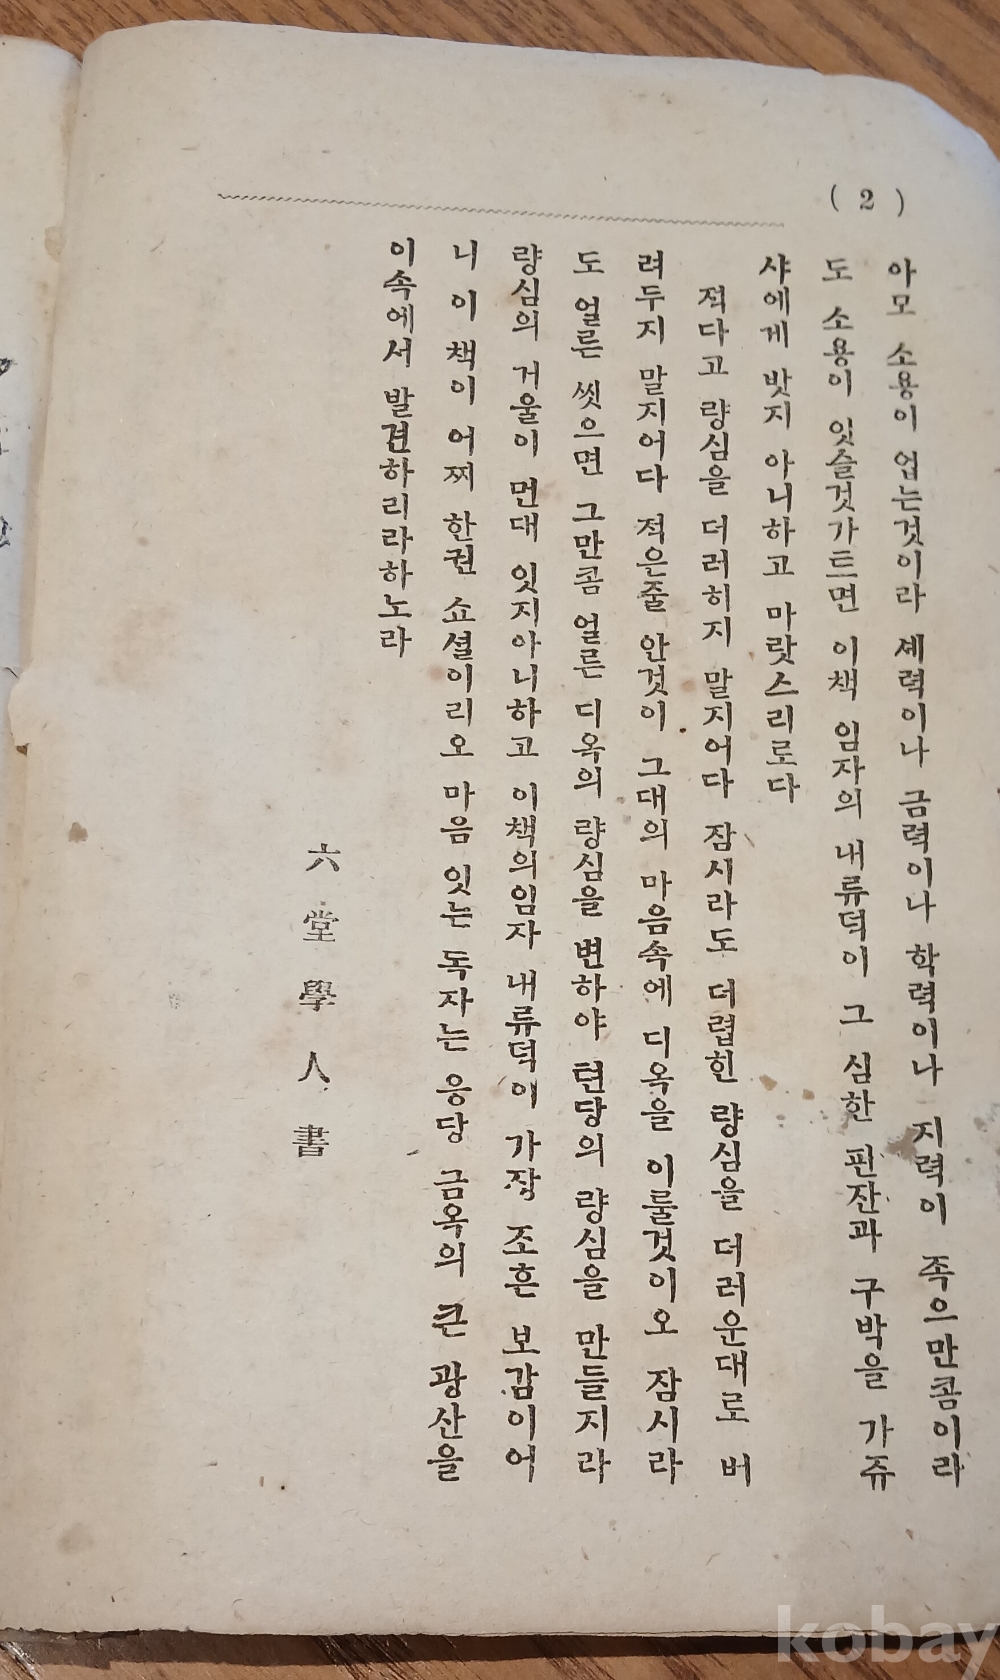 ( 2 )
아모 소용이 업는것이라 셰력이나 금력이나 학력이나 지력이 족으만콤이라
도 소용이 잇슬것가트면 이책 임자의 내류덕이 그 심한 핀잔과 구박을 가쥬
샤에게 밧지 아니하고 마랏스리로다
젹다고 량심을 더러히지 말지어다 잠시라도 더렵힌 량심을 더러운대로 버
려두지 말지어다 적은줄 안것이 그대의 마음속에 디옥을 이룰것이오 잠시라
도 얼른 씻으면 그만콤 얼른 디옥의 량심을 변하야 텬당의 량심을 만들지라
량심의 거울이 먼대 잇지아니하고 이책의임자 내류덕이 가장 조흔 보감이어
니 이 책이 어찌 한권 쇼셜이리오 마음 잇는 독자는 응당 금옥의 큰 광산을
이속에서 발견하리라하노라
六堂學人書
kobay